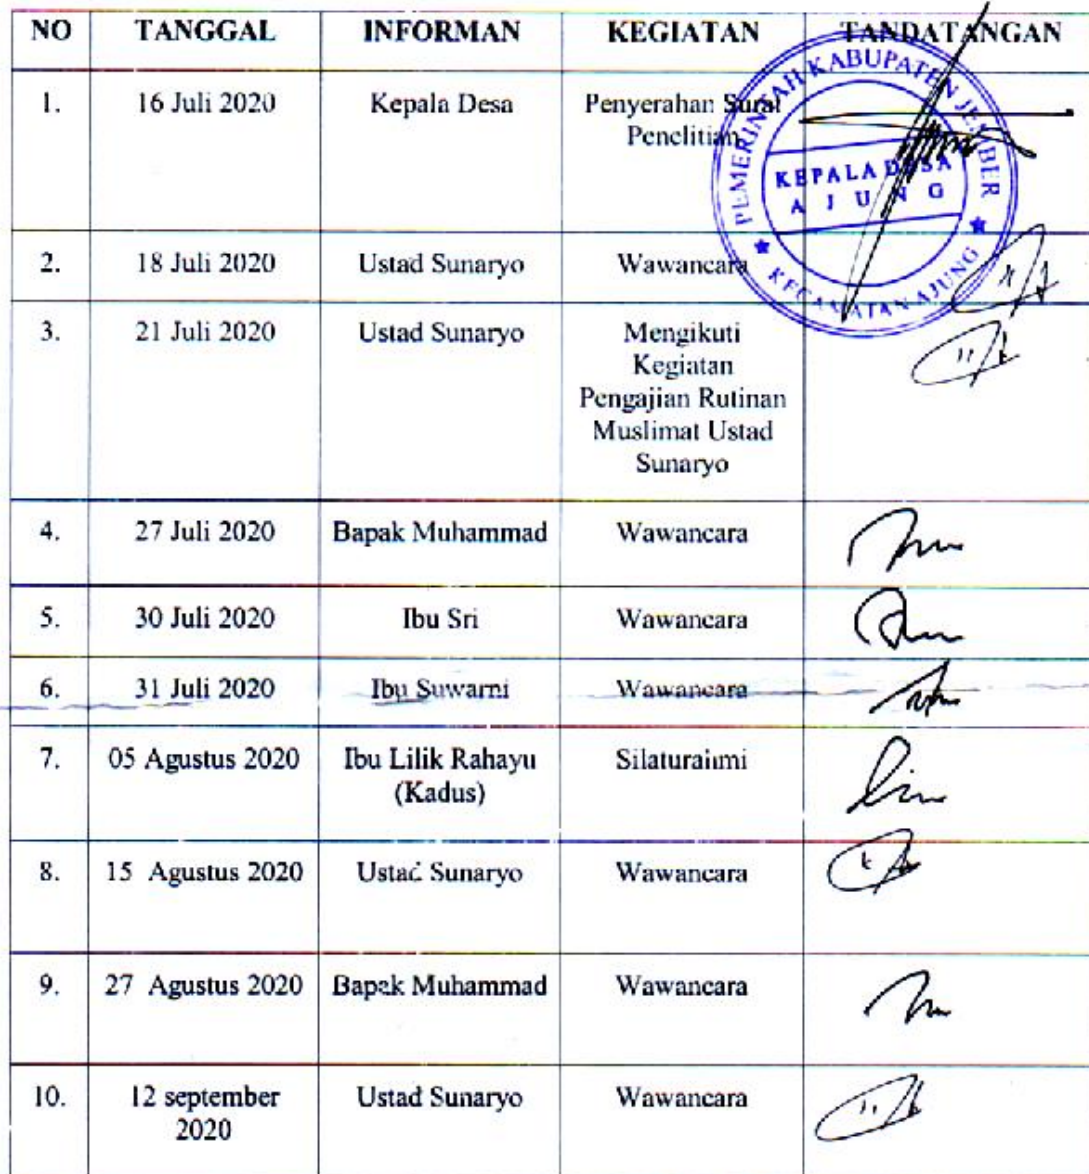 NO TANGGAL INFORMAN KEGIATAN TANDATANGAN
1. 16 Juli 2020 Kepala Desa Penyerahan Surat
Penelitian
PEMERINTAH KABUPATEN JEMBER
KEPALA DESA
AJUNG
KECAMATAN AJUNG
2. 18 Juli 2020 Ustad Sunaryo Wawancara
3. 21 Juli 2020 Ustad Sunaryo Mengikuti
Kegiatan
Pengajian Rutinan
Muslimat Ustad
Sunaryo
4. 27 Juli 2020 Bapak Muhammad Wawancara
5. 30 Juli 2020 Ibu Sri Wawancara
6. 31 Juli 2020 Ibu Suwarni Wawancara
7. 05 Agustus 2020 Ibu Lilik Rahayu Silaturahmi
(Kadus)
8. 15 Agustus 2020 Ustad Sunaryo Wawancara
9. 27 Agustus 2020 Bapak Muhammad Wawancara
10. 12 september Ustad Sunaryo Wawancara
2020